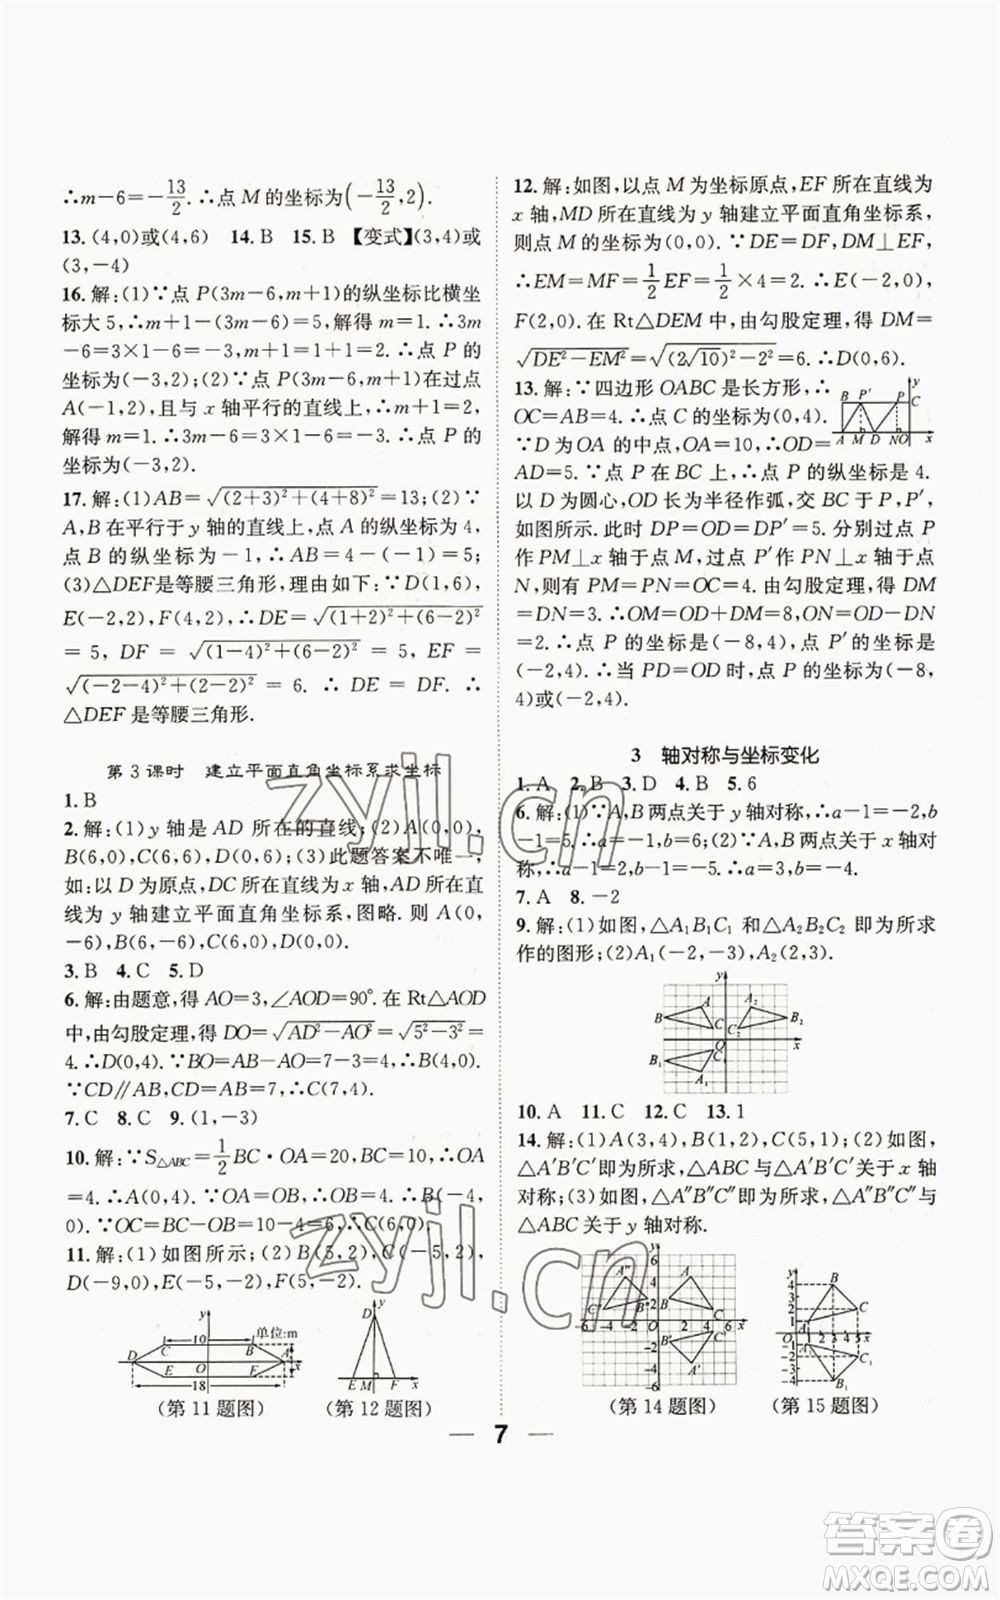 ∴m-6=-13/2. ∴点 M 的坐标为(-13/2,2).
13. (4,0)或(4,6)　14. B　15. B 【变式】(3,4)或
(3,-4)
16. 解:(1)∵点 P(3m-6,m+1)的纵坐标比横坐
标大 5,∴m+1-(3m-6)=5,解得 m=1. ∴3m
-6=3×1-6=-3,m+1=1+1=2. ∴点 P 的
坐标为(-3,2);(2)∵点 P(3m-6,m+1)在过点
A(-1,2),且与 x 轴平行的直线上,∴m+1=2,
解得 m=1. ∴3m-6=3×1-6=-3. ∴点 P 的
坐标为(-3,2).
17. 解:(1)AB=√((2+3)²+(4+8)²)=13;(2)∵
A,B 在平行于 y 轴的直线上,点 A 的纵坐标为 4,
点 B 的纵坐标为-1,∴AB=4-(-1)=5;
(3)△DEF是等腰三角形,理由如下:∵D(1,6),
E(-2,2),F(4,2),∴DE=√((1+2)²+(6-2)²)
= 5, DF = √((1-4)²+(6-2)²) = 5, EF =
√((-2-4)²+(2-2)²) = 6. ∴ DE = DF. ∴
△DEF 是等腰三角形.
第 3 课时　建立平面直角坐标系求坐标
1. B
2. 解:(1)y 轴是 AD 所在的直线;(2)A(0,0),
B(6,0),C(6,6),D(0,6);(3)此题答案不唯一,
如:以点 D 为原点,DC所在直线为 x 轴,AD所在
直线为 y 轴建立平面直角坐标系,图略. 则 A(0,
-6),B(6,-6),C(6,0),D(0,0).
3. B　4. C　5. D
6. 解:由题意,得 AO=3,∠AOD=90°. 在 Rt△AOD
中,由勾股定理,得 DO=√(AD²-AO²)=√(5²-3²)=
4. ∴D(0,4). ∵BO=AB-AO=7-3=4,∴B(4,0).
∵CD∥AB,CD=AB=7,∴C(7,4).
7. C　8. C　9. (1,-3)
10. 解:∵S△ABC=1/2 BC·OA=20,BC=10,∴OA
=4. ∴A(0,4). ∵OA=OB,∴OB=4. ∴B(-4,
0). ∵OC=BC-OB=10-4=6,∴C(6,0).
11. 解:(1)如图所示;(2)B(5,2),C(-5,2),
D(-9,0),E(-5,-2),F(5,-2).
y 单位:m
10
C B
D A x
E O F
18
(第 11 题图)
y
D
E M F x
(第 12 题图)
12. 解:如图,以点 M 为坐标原点,EF 所在直线为
x 轴,MD 所在直线为 y 轴建立平面直角坐标系,
则点 M 的坐标为(0,0). ∵DE=DF,DM⊥EF,
∴EM=MF=1/2 EF=1/2×4=2. ∴E(-2,0),
F(2,0). 在 Rt△DEM 中,由勾股定理,得 DM=
√(DE²-EM²)=√((2√10)²-2²)=6. ∴D(0,6).
13. 解:∵四边形 OABC 是长方形,∴
OC=AB=4. ∴点 C 的坐标为(0,4).
∵D 为 OA 的中点,OA=10,∴OD=
B P′ P C y
A M D N O x
AD=5. ∵点 P 在 BC 上,∴点 P 的纵坐标是 4.
以 D 为圆心,OD 长为半径作弧,交 BC 于 P,P′,
如图所示. 此时 DP=OD=DP′=5. 分别过点 P
作 PM⊥x 轴于点 M,过点 P′作 PN⊥x 轴于点
N,则有 PM=PN=OC=4. 由勾股定理,得 DM
=DN=3. ∴OM=OD+DM=8,ON=OD-DN
=2. ∴点 P 的坐标是(-8,4),点 P′的坐标是
(-2,4). ∴当 PD=OD 时,点 P 的坐标为(-8,
4)或(-2,4).
3　轴对称与坐标变化
1. A　2. B　3. D　4. B　5. 6
6. 解:(1)∵A,B两点关于 y 轴对称,∴a-1=-2,b
-1=5. ∴a=-1,b=6;(2)∵A,B 两点关于 x 轴对
称,∴a-1=2,b-1=-5. ∴a=3,b=-4.
7. A　8. -2
9. 解:(1)如图,△A₁B₁C₁ 和△A₂B₂C₂ 即为所求
作的图形;(2)A₁(-2,-3),A₂(2,3).
y
B A C A₂ B₂ C₂
O x
B₁ C₁ A₁
10. A　11. C　12. C　13. 1
14. 解:(1)A(3,4),B(1,2),C(5,1);(2)如图,
△A′B′C′即为所求,△ABC 与△A′B′C′关于 x 轴
对称;(3)如图,△A″B″C″即为所求,△A″B″C″与
△ABC 关于 y 轴对称.
(第 14 题图)
(第 15 题图)
7
zyjl.cn
zyjl.cn
答案卷
MXQE.COM